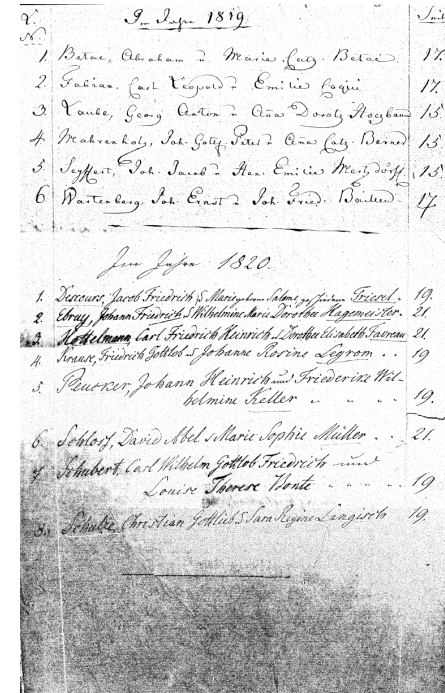 L. Im Jahre 1819. Seite
N.
1, Betac, Abraham u Marie Cath. Betac 17.
2 Fabian, Carl Leopold u Emilie 17.
3 Taube, Georg Anton u Aña Doroth. 15.
4 Mahrenholz, Joh. Gotfr. Peter u Aña Cath. Berned 15
5. Seyffert, Joh. Jacob u Hen. Emilie Mertzdorff 15
6 Wartenberg, Joh. Ernst u Joh. Fried. 17.
Im Jahre 1820.
1. Descours, Jacob Friedrich & Marie geborne Salomé, geschiedene Triesel. 19.
2. Ebruy, Johann Friedrich & Wilhelmine Marie Dorothee Hagemeister. 21.
3. Hottelmann, Carl Friedrich Heinrich & Dorothee Elisabeth Favreau 21.
4. Krause, Friedrich Gottlob & Johanne Rosine Legrom . . 19
5. Peucker, Johann Heinrich und Friederike Wil-
helmine Keller " " " " 19.
6 Schloss, David Abel & Marie Sophie Müller . . 21.
7 Schubert, Carl Wilhelm Gottlob Friedrich und
Louise Therese Bonte " " " " 19
8. Schulze, Christian Gottlieb & Sara Regine Längisch 19.